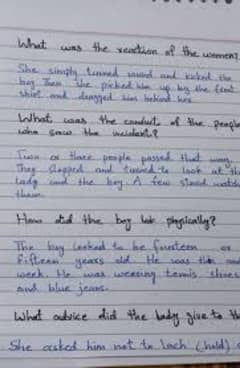 What was the reaction of the women?
She simply turned round and kicked the
boy. Then she picked him up by the front
shirt and dragged him behind her.
What was the conduct of the people
who saw the incident?
Two or three people passed that way.
They stopped and turned to look at the
lady and the boy. A few stood watch
them.
How did the boy look physically?
The boy looked to be fourteen or
fifteen years old. He was thin and
week. He was wearing tennis shoes
and blue jeans.
What advice did the lady give to th
She asked him not to (hold)